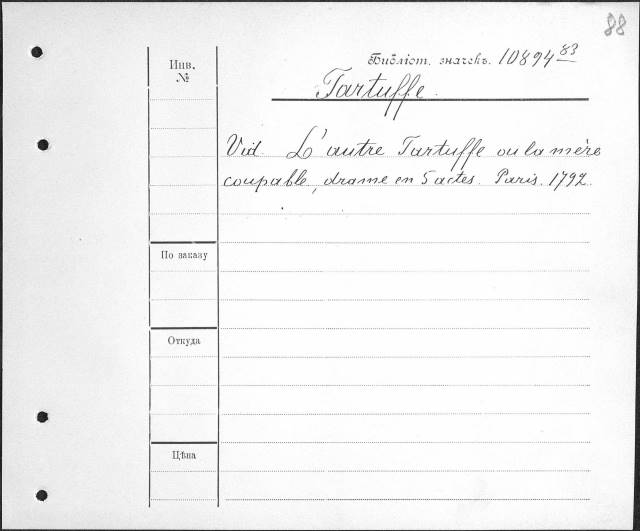 88
Инв. Библіот. значекъ. 10894 83
№
Tartuffe.
Vid. L'autre Tartuffe ou la mère
coupable, drame en 5 actes. Paris. 1792.
По заказу
Откуда
Цѣна